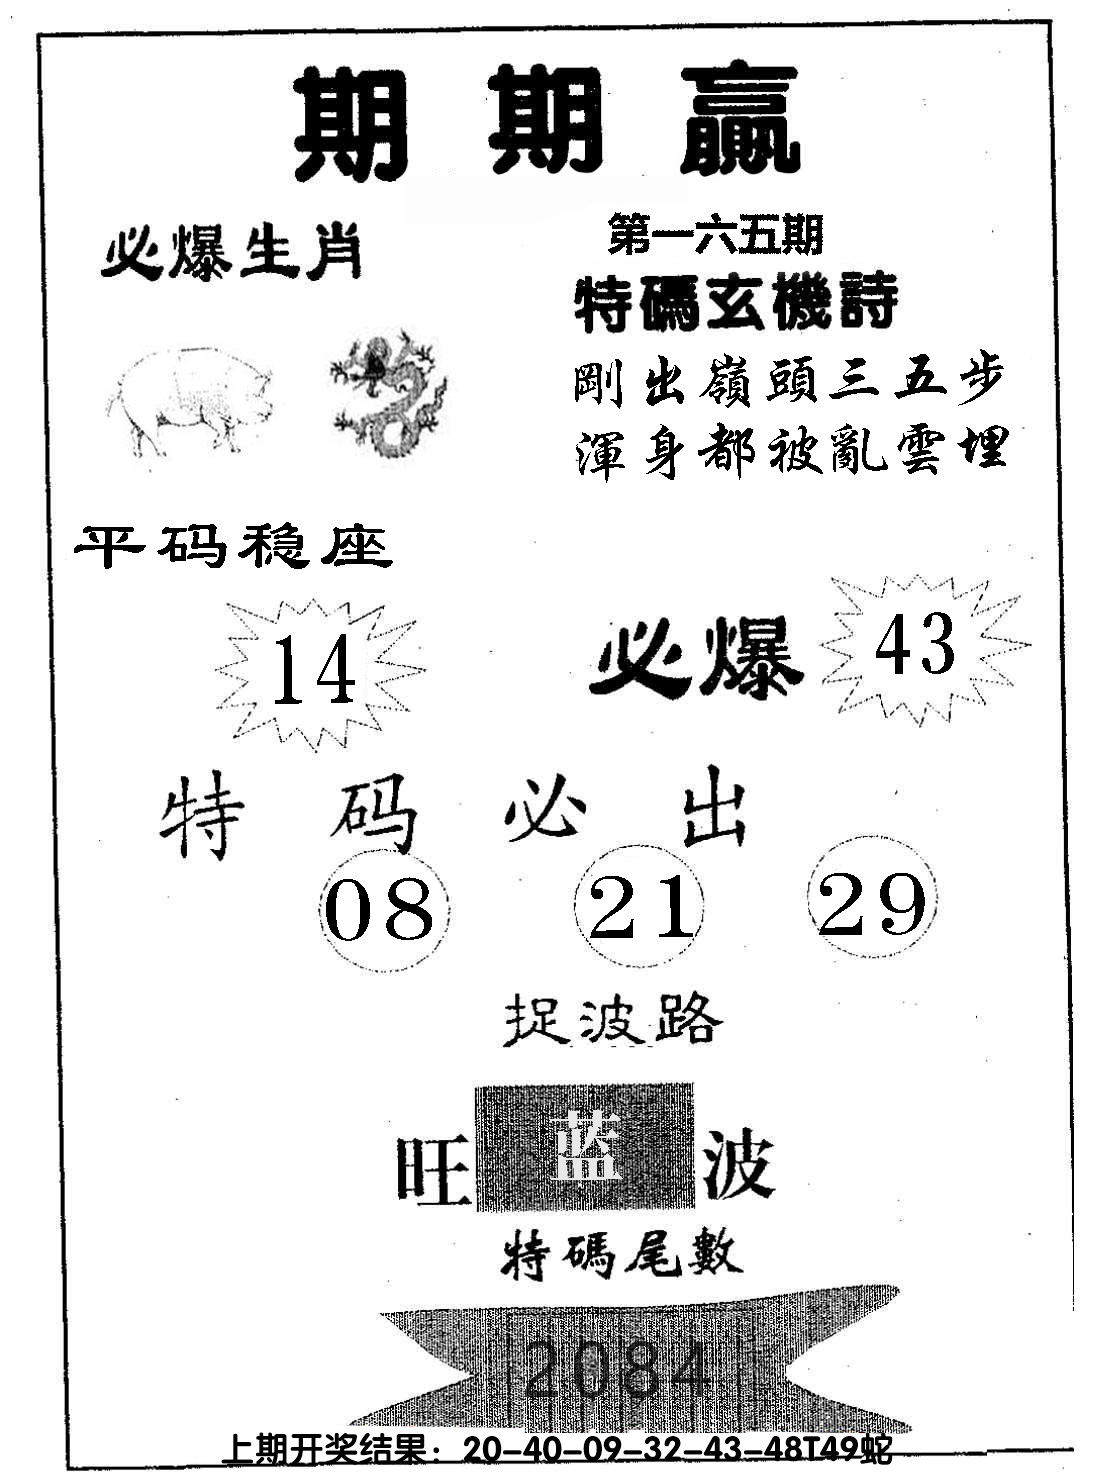 期期贏
必爆生肖
第一六五期
特碼玄機詩
剛出嶺頭三五步
渾身都被亂雲埋
平码稳座
14
必爆 43
特码必出
08 21 29
捉波路
旺 蓝 波
特碼尾數
2084
上期开奖结果：20-40-09-32-43-48T49蛇